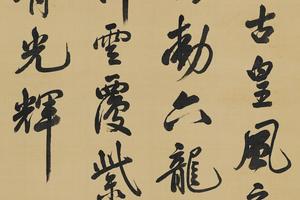 古皇風
六龍
雲覆紫
光輝